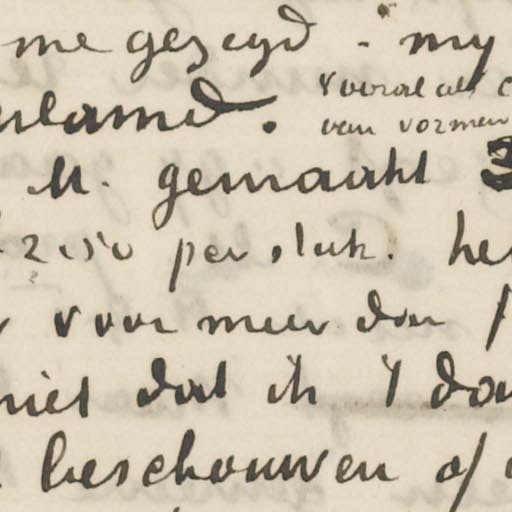 me gezegd - my
vooral als
van vormen
M. gemaakt 3
2.50 per stuk. he
voor meer dan f
niet dat ik 't da
beschouwen of